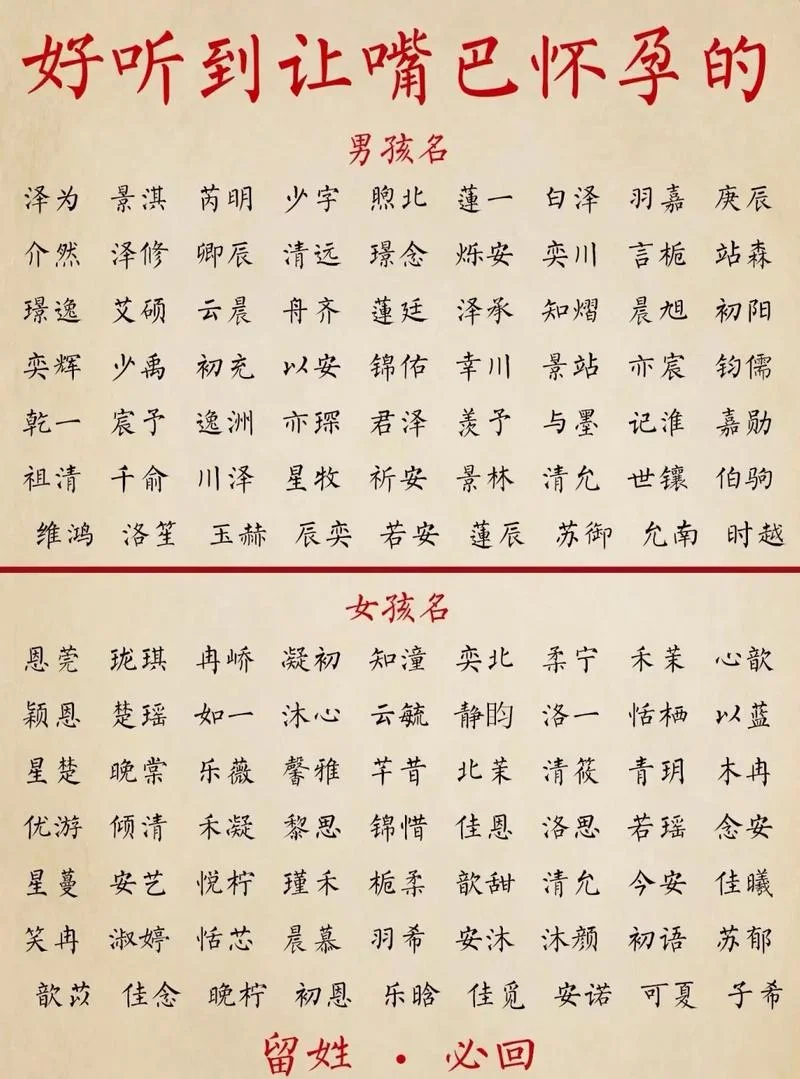 好听到让嘴巴怀孕的
男孩名
泽为 景淇 芮明 少字 煦北 蓮一 白泽 羽嘉 庚辰
介然 泽修 卿辰 清远 璟念 烁安 奕川 言栀 站森
璟逸 艾硕 云晨 舟齐 蓮廷 泽承 知熠 晨旭 初阳
奕辉 少禹 初充 以安 锦佑 幸川 景站 亦宸 钧儒
乾一 宸予 逸洲 亦琛 君泽 羡予 与墨 记淮 嘉勋
祖清 千俞 川泽 星牧 祈安 景林 清允 世镶 伯驹
维鸿 洛笙 玉赫 辰奕 若安 蓮辰 苏御 允南 时越
女孩名
恩莞 珑琪 冉峤 凝初 知潼 奕北 柔宁 禾茉 心歆
颖恩 楚瑶 如一 沐心 云毓 静盷 洛一 恬栖 以蓝
星楚 晚棠 乐薇 馨雅 芊昔 北茉 清筱 青玥 木冉
优游 倾清 禾凝 黎思 锦惜 佳恩 洛思 若瑶 念安
星蔓 安艺 悦柠 瑾禾 栀柔 歆甜 清允 今安 佳曦
笑冉 淑婷 恬芯 晨慕 羽希 安沐 沐颜 初语 苏郁
歆苡 佳念 晚柠 初恩 乐晗 佳觅 安诺 可夏 子希
留姓 · 必回